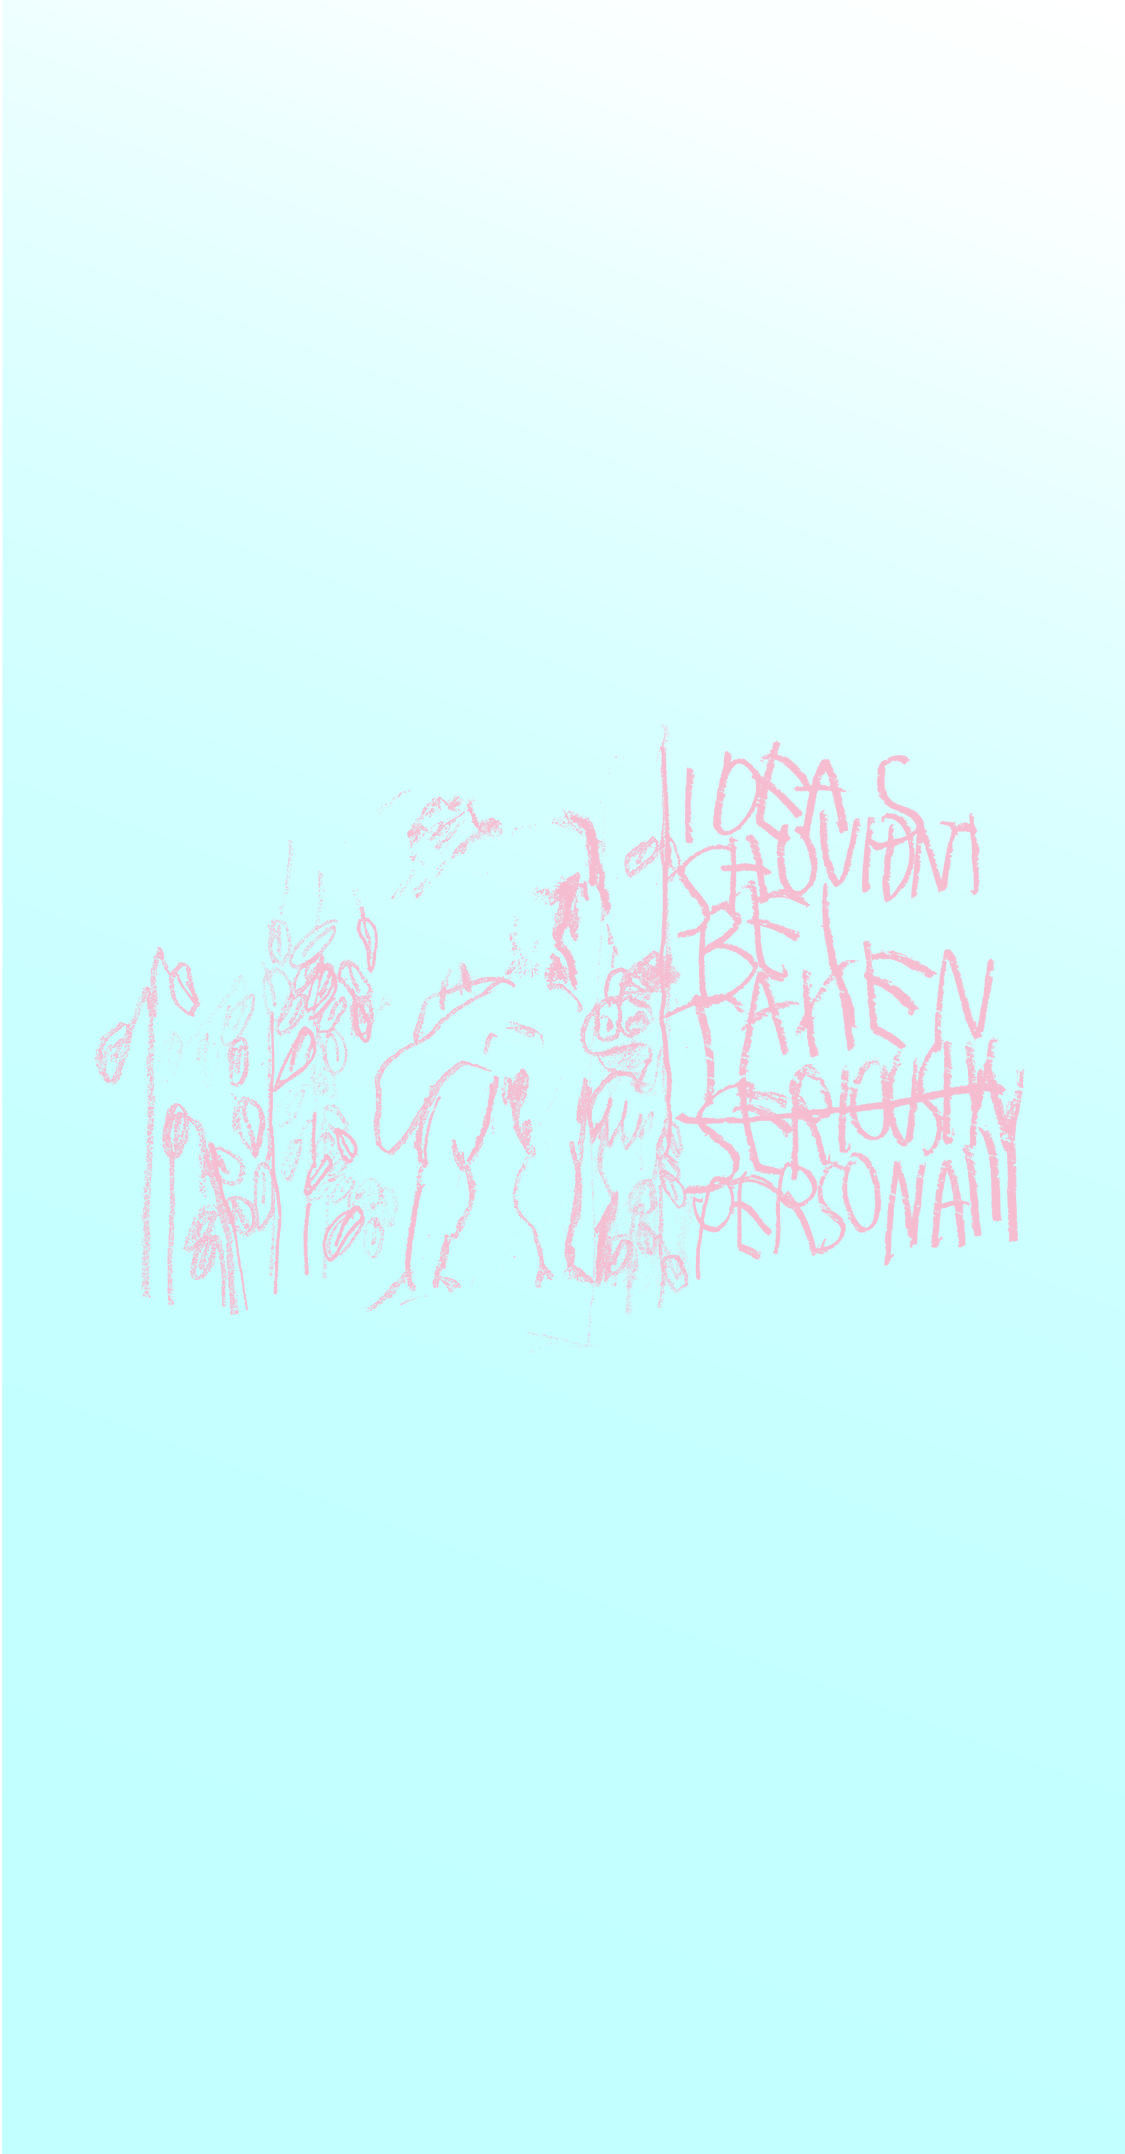 IDEAS
SHOULDN'T
BE
TAKEN
SERIOUSLY
PERSONALLY